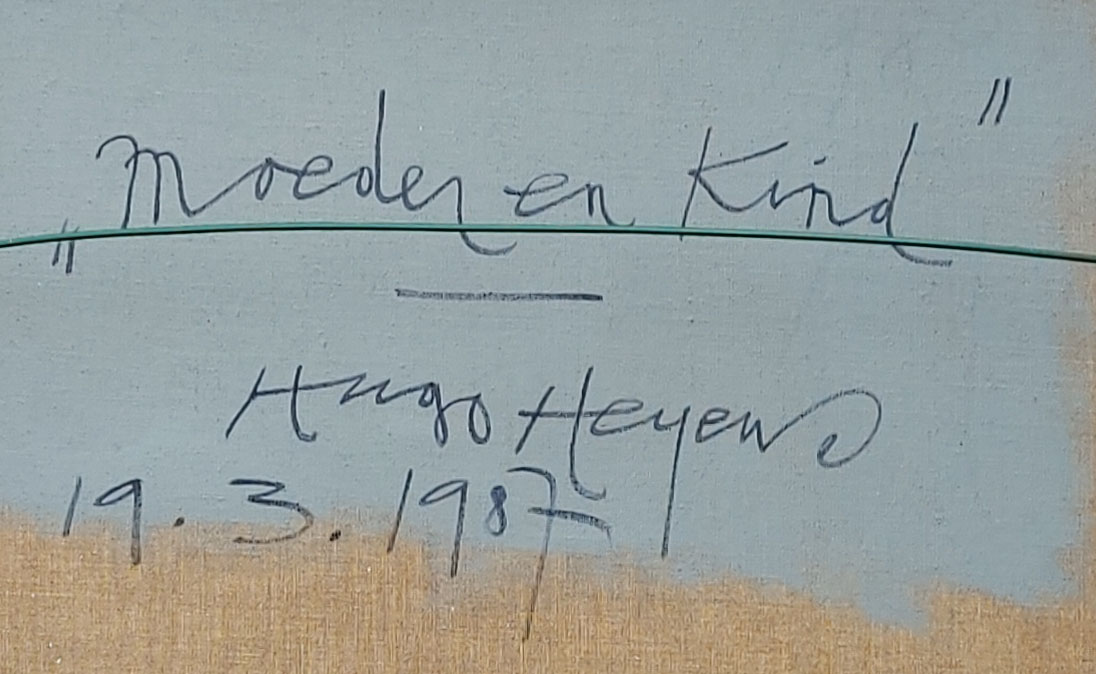 „Moeder en Kind"
Hugo Heyens
19.3.1987